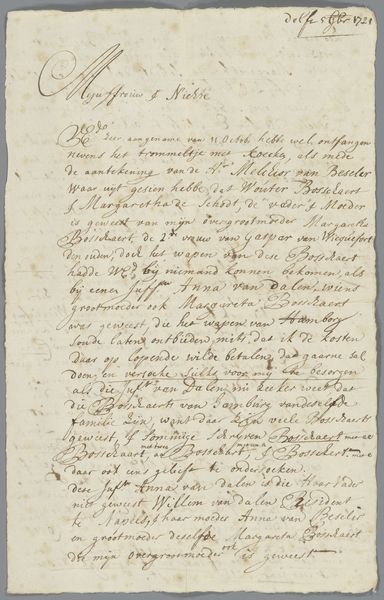 Delft 5 9br 1721
Mejuffrouw & Nichte
UEd zeer aangename van 11 Octobr hebbe wel ontfangen
nevens het trommeltje met koeckx, als mede
de aantekening van de Hr Melchior van Beseler
waar uijt gesien hebbe dat Wouter Bosschaert
& Margaretha de Schodt, de vader & Moeder
is geweest van mijn overgrootmoeder Margareta
Bosschaert, de 2de vrouw van Gaspar van Wicquefort
den ouden, doch het wapen van dese Bosschaert
hadde UEd bij niemand konnen bekomen als
bij eenen Juffr Anna van Dalen, wiens
grootmoeder ook Margareta Bosschaert
was geweest, die het wapen van Hamborg
soude laten ontbieden, mits dat ik de kosten
daar op lopende wilde betalen, dat gaarne sal
doen, en versoeke sulks voor mij te besorgen
als die Juffr van Dalen nu seeker weet dat
die Bosschaerts van Hamburg van deselfde
familie zijn, want daar zijn veele Bosschaerts
geweest, & sommige schryven Bosschaert met ae
Bosschaart, met aa & Bosschert, met e
daar ook eens gelieft te ondersoeken.
dese Juffr Anna van Dalen is die haar vader
niet geweest Willem van Dalen Resident
te Napels, & haar moeder Anna van Beseler
en grootmoeder deselfde Margareta Bosschaert
die mijn overgrootmoeder ook is geweest